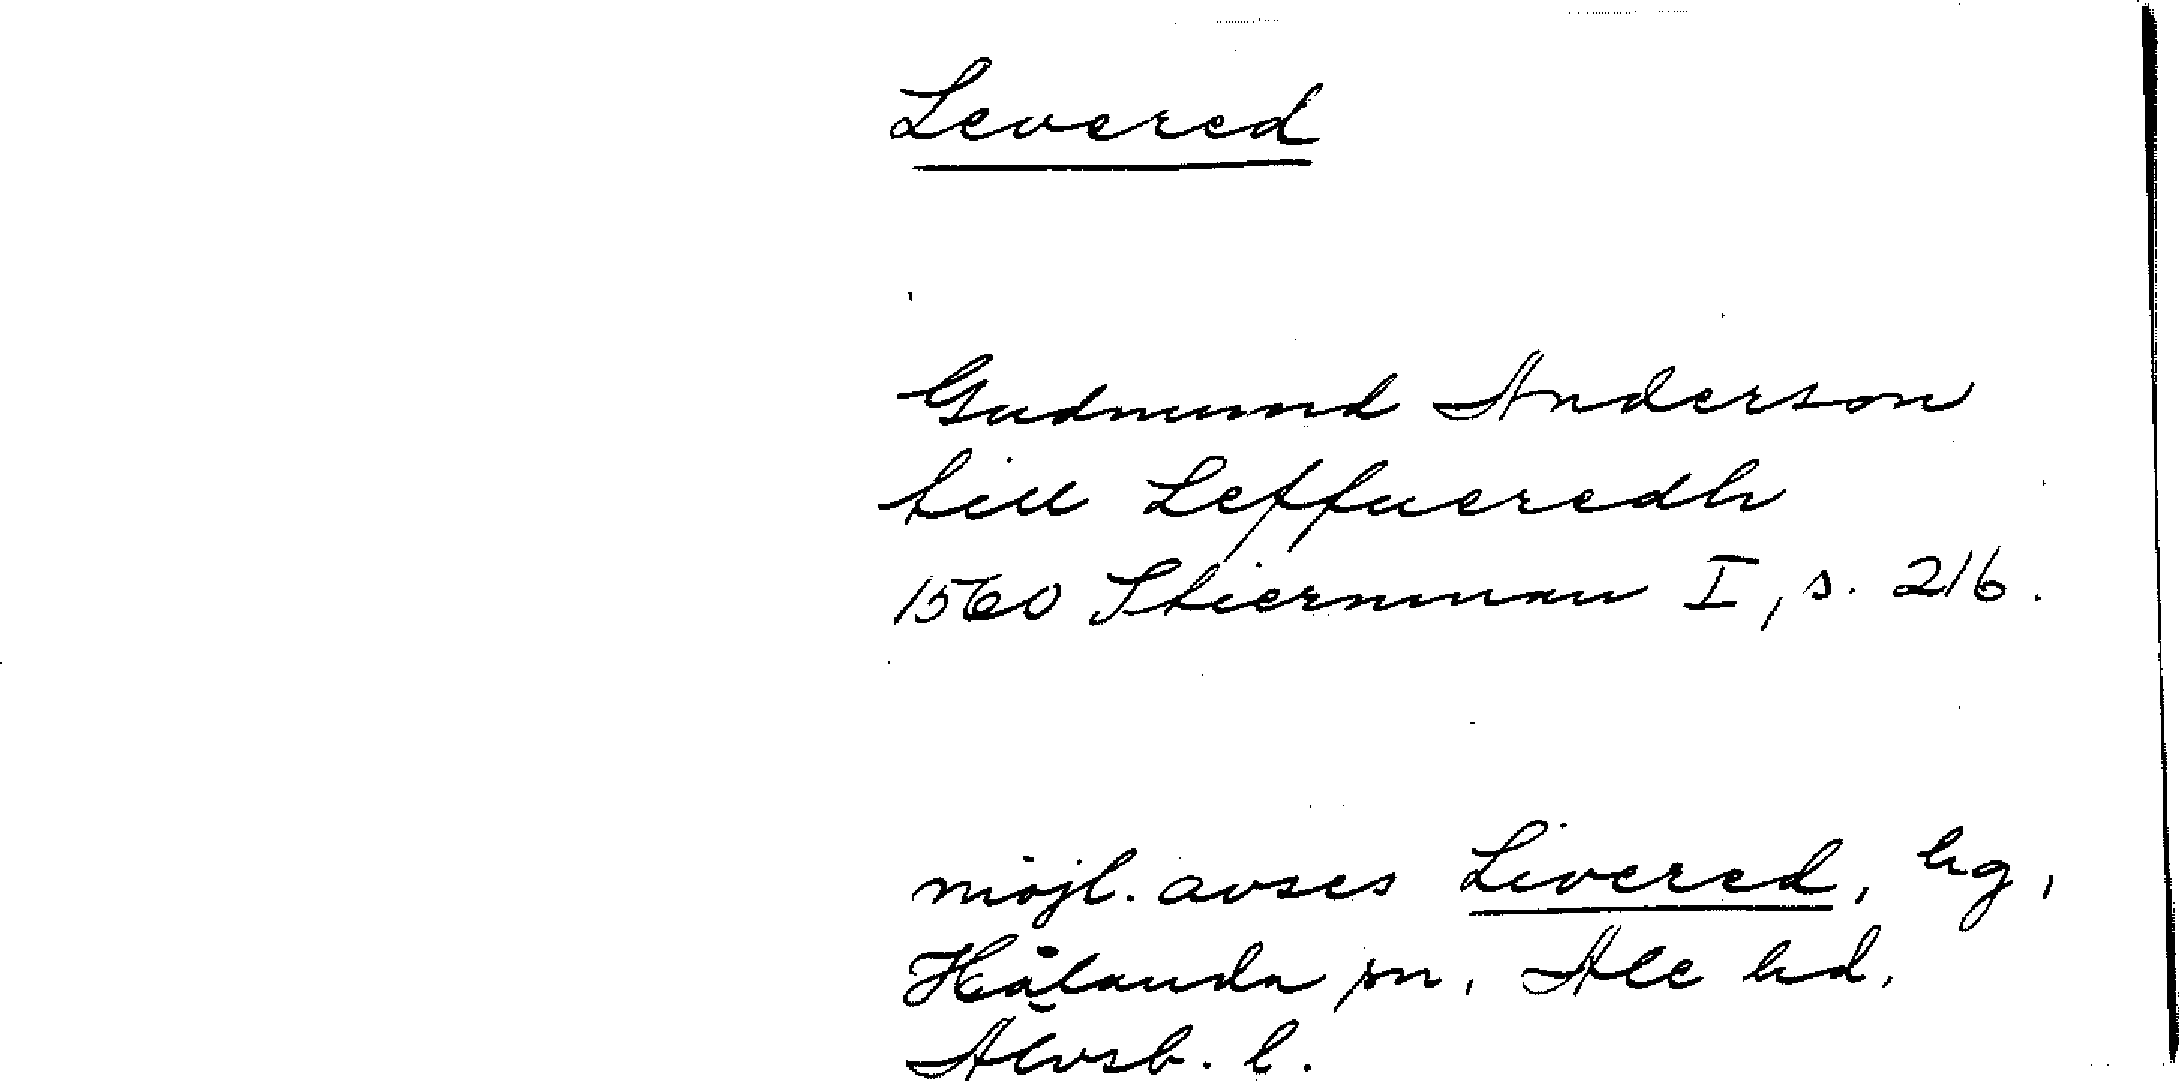 Levered
Gudmund Anderson
till Leffueredh
1560 Stiernman I, s. 216.
möjl. avses Livered, hg,
Hålanda sn, Ale hd,
Älvsb. l.